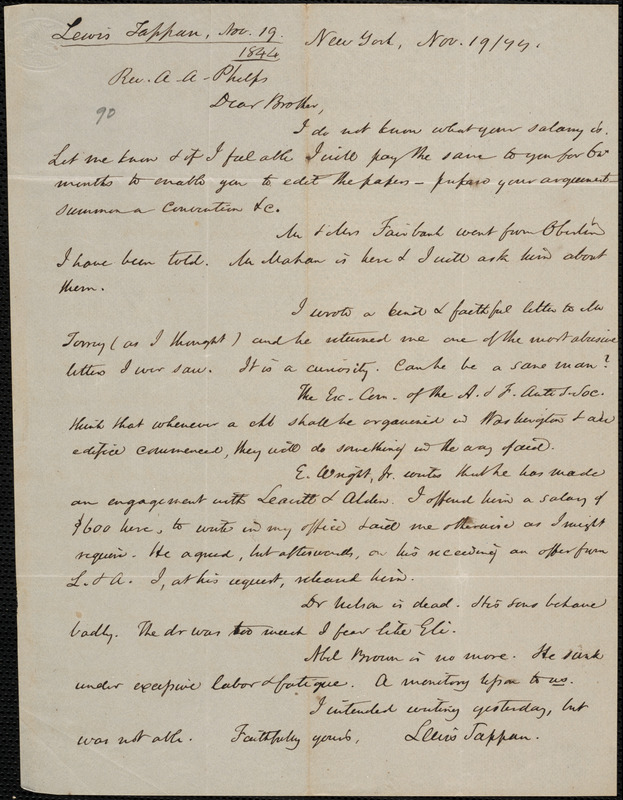 Lewis Tappan, Nov. 19.
1844
New York, Nov. 19/44.
Rev. A. A. Phelps
90
Dear Brother,
I do not know what your salary is.
Let me know & if I feel able I will pay the same to you for six
months to enable you to edit the papers – prepare your argument
summon a convention &c.
Mr & Mrs Fairbank went from Oberlin
I have been told. Mr Mahan is here & I will ask him about
them.
I wrote a kind & faithful letter to Mr
Torrey (as I thought) and he returned me one of the most abusive
letters I ever saw. It is a curiosity. Can he be a sane man?
The Exc. Com. of the A. & F. Anti S. Soc.
think that whenever a chh shall be organized in Washington & an
edifice commenced, they will do something in the way of aid.
E. Wright, Jr. writes that he has made
an engagement with Leavitt & Alden. I offered him a salary of
$600 here, to write in my office & aid me otherwise as I might
require. He agreed, but afterwards, on his receiving an offer from
L. & A. I, at his request, released him.
Dr Nelson is dead. His sons behave
badly. The dr was too much I fear like Eli.
Abel Brown is no more. He sunk
under excessive labor & fatigue. A monitory lesson to us.
I intended writing yesterday, but
was not able. Faithfully yours, Lewis Tappan.